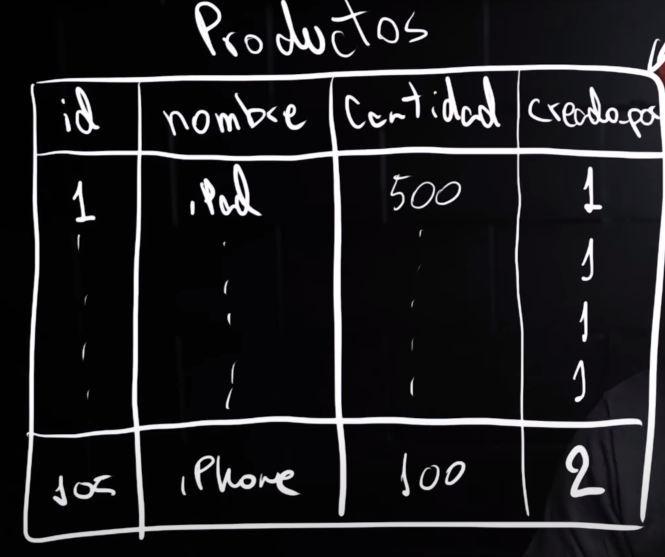 Productos
id nombre Cantidad creado_por
1 iPad 500 1
1
1
1
iPhone 100 2